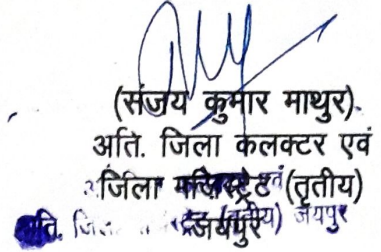 (संजय कुमार माथुर)
अति. जिला कलक्टर एवं
जिला मजिस्ट्रेट (तृतीय)
जयपुर
एवं
अति. जिला (तृतीय) जयपुर